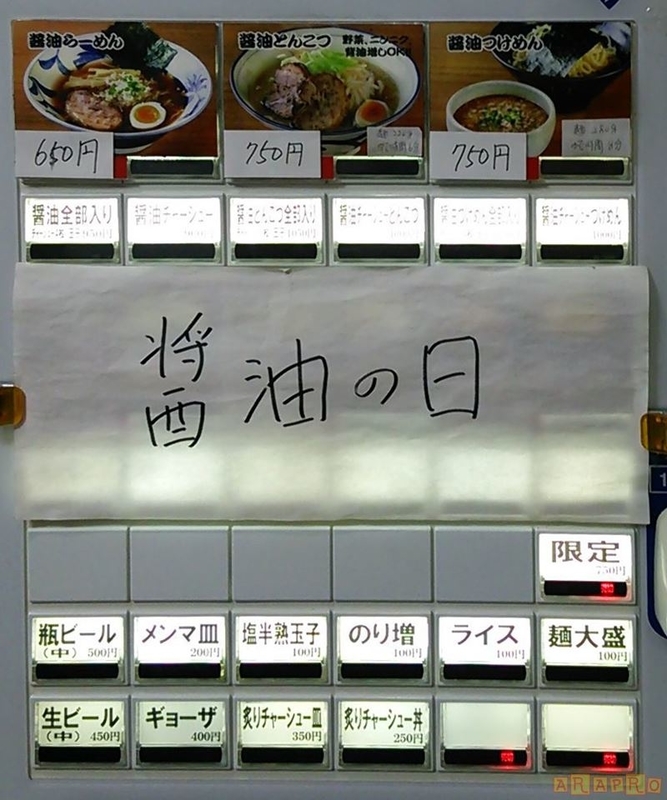 醤油らーめん
650円
醤油とんこつ
野菜、ニンニク、
背油増しOK!!
750円
醤油つけめん
750円
醤油全部入り
950円
醤油チャーシュー
醤油とんこつ全部入り
1050円
醤油チャーシューとんこつ
醤油つけめん全部入り
醤油チャーシューつけめん
1000円
醤油の日
限定
750円
瓶ビール
(中) 500円
メンマ皿
200円
塩半熟玉子
100円
のり増
100円
ライス
100円
麺大盛
100円
生ビール
(中) 450円
ギョーザ
400円
炙りチャーシュー皿
350円
炙りチャーシュー丼
250円
1
ARAPRO